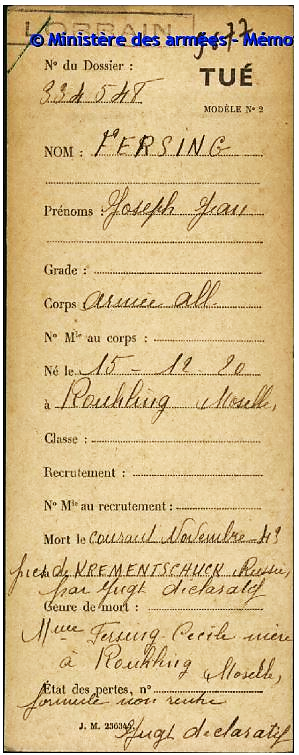 LORRAIN
© Ministère des armées - Mémo
N° du Dossier :
334548
TUÉ
MODÈLE N° 2
NOM : FERSING
Prénoms : Joseph Jean
Grade :
Corps armée all.
N° Mle au corps :
Né le 15 - 12 20
à Rouhling Moselle,
Classe :
Recrutement :
N° Mle au recrutement :
Mort le courant Novembre 43
près de KREMENTSCHUCK Russie,
par Jugt déclaratif
Genre de mort :
Mme Fersing Cécile mère
à Rouhling Moselle,
État des pertes, n°
formule non rentrée
J. M. 236345.
Jugt déclaratif